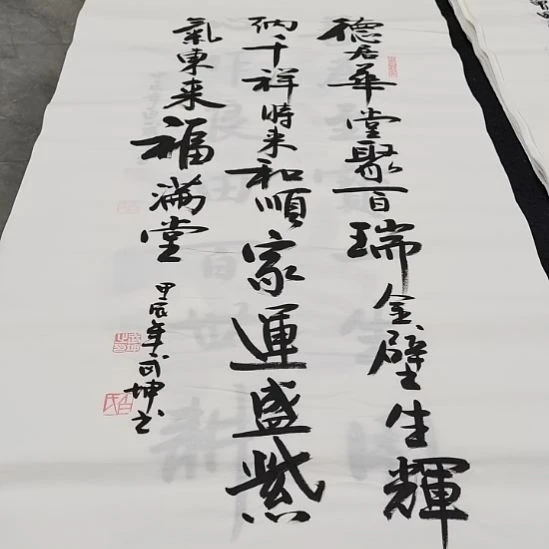 德居華堂聚百瑞金壁生輝
纳千祥時来和順家運盛紫
氣東来福滿堂
甲辰年武坤书